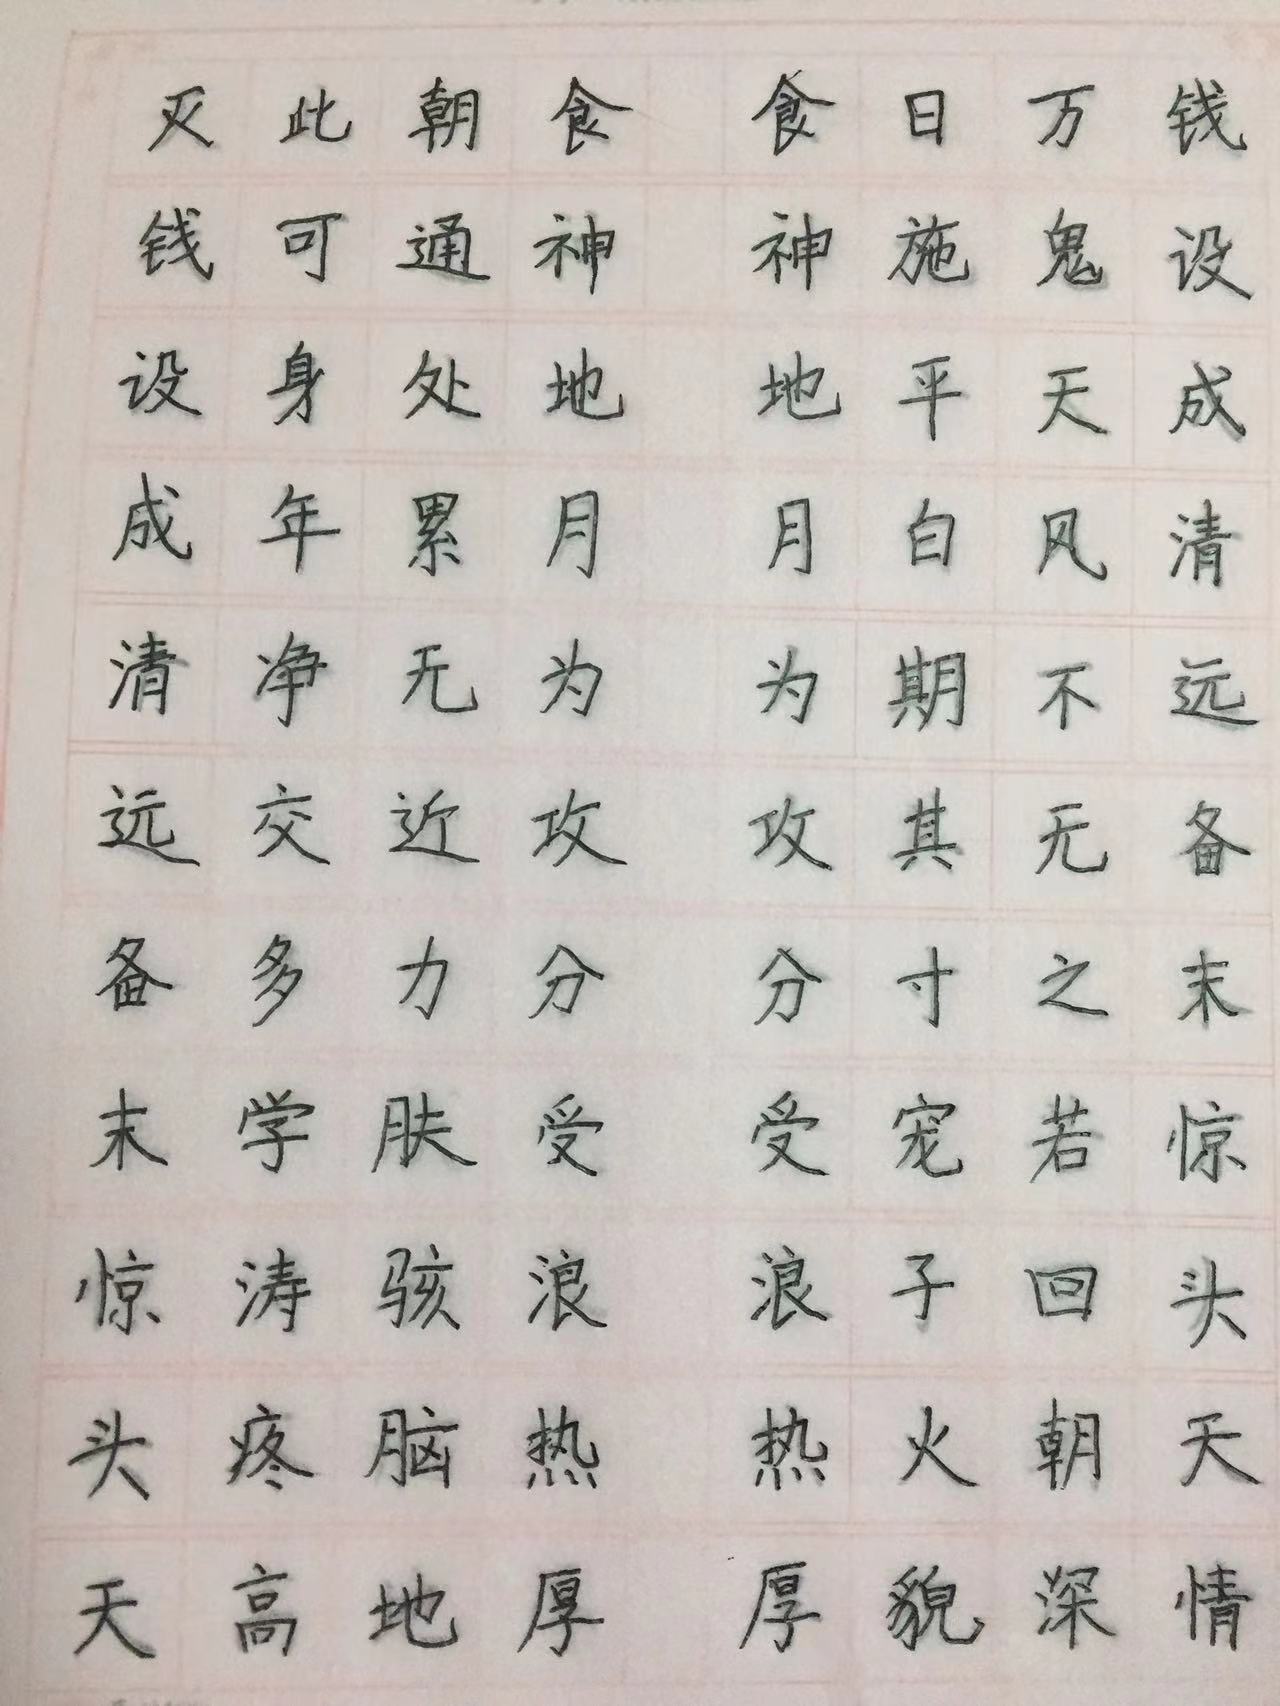 灭此朝食 食日万钱
钱可通神 神施鬼设
设身处地 地平天成
成年累月 月白风清
清净无为 为期不远
远交近攻 攻其无备
备多力分 分寸之末
末学肤受 受宠若惊
惊涛骇浪 浪子回头
头疼脑热 热火朝天
天高地厚 厚貌深情